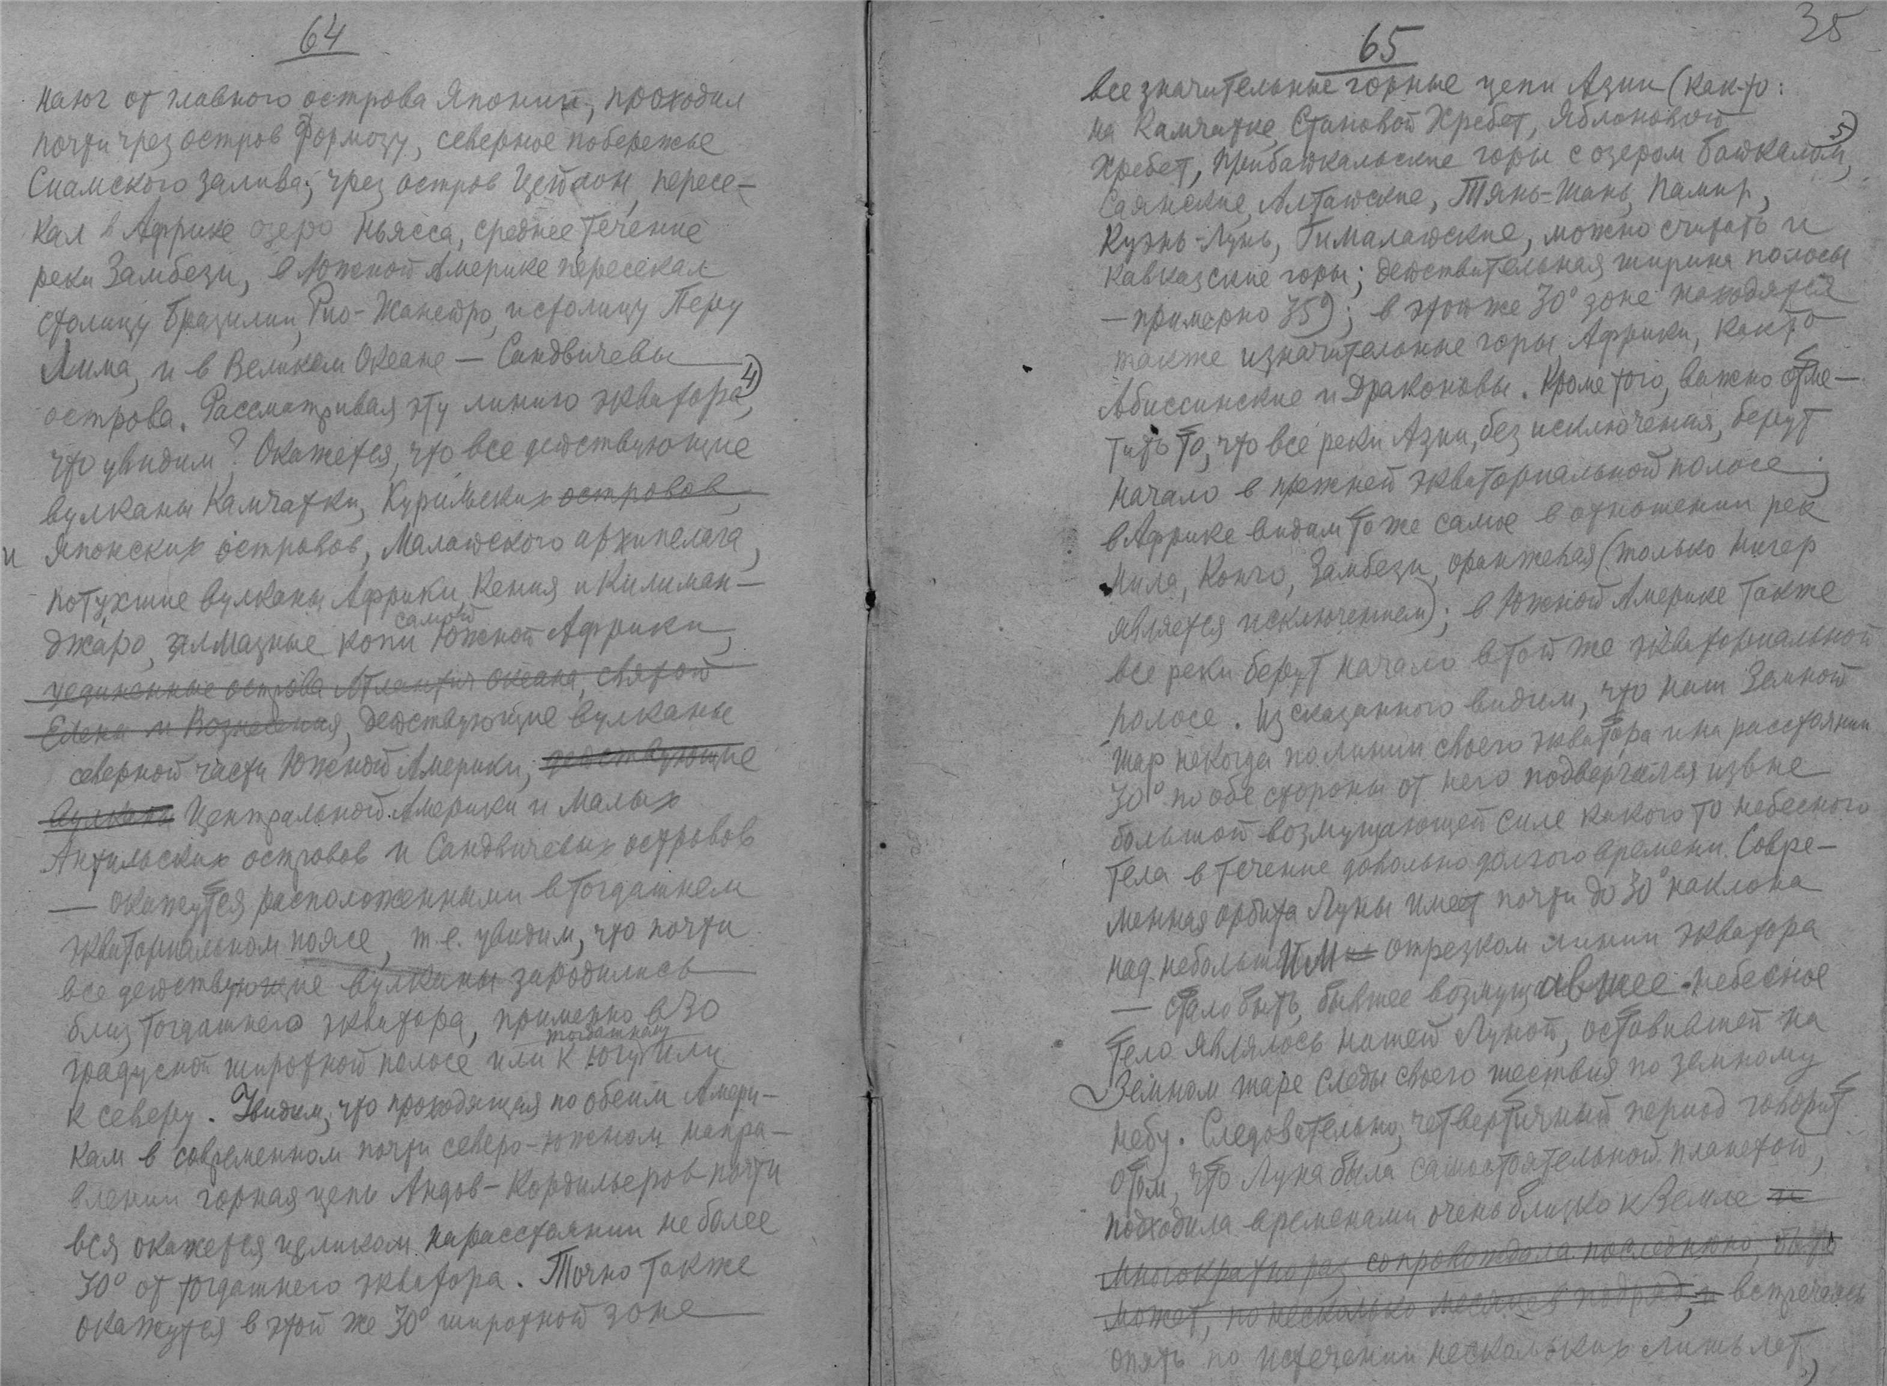 64
на юг от главного острова Японии, проходил
почти чрез остров Формозу, северное побережье
Сиамского залива, чрез остров Цейлон, пересе–
кал в Африке озеро Ньясса, среднее течение
реки Замбези, в Южной Америке пересекал
столицу Бразилии, Рио-Жанейро, и столицу Перу
Лима, и в Великом Океане — Сандвичевы
острова. Рассматривая эту линию экватора 4),
что увидим? Окажется, что все действующие
вулканы Камчатки, Курильских островов,
и Японских островов, Малайского архипелага,
потухшие вулканы Африки Кения и Килиман–
джаро, алмазные копи самой Южной Африки,
уединенные острова Атлантич океана, святой
Елены и Вознесения, действующие вулканы
северной части Южной Америки, действующие
вулканы Центральной Америки и Малых
Антильских островов и Сандвичевых островов
— окажутся расположенными в тогдашнем
экваториальном поясе, т.е. увидим, что почти
все действующие вулканы зародились
близ тогдашнего экватора, примерно в 30
градусной широтной полосе или к тогдашнему югу или
к северу. Увидим, что проходящая по обеим Амери–
кам в современном почти северо-южном напра–
влении горная цепь Андов–Кордильеров почти
вся окажется целиком на расстоянии не более
30° от тогдашнего экватора. Точно также
окажутся в этой же 30° широтной зоне
65
35
все значительные горные цепи Азии (как-то:
на Камчатке, Становой Хребет, Яблоновой
Хребет, Прибайкальские горы с озером Байкалом 5),
Саянские, Алтайские, Тянь-Шань, Памир,
Куэнь-Лунь, Гималайские, можно считать и
Кавказские горы; действительная ширина полосы
— примерно 35°); в этой же 30° зоне находятся
также и значительные горы Африки, как то
Абиссинские и Драконовы. Кроме того, важно отме–
тить то, что все реки Азии, без исключения, берут
начало в прежней экваториальной полосе;
в Африке видим то же самое в отношении рек
Нила, Конго, Замбези, Оранжевая (только Нигер
является исключением); в Южной Америке также
все реки берут начало в той же экваториальной
полосе. Из сказанного видим, что наш Земной
шар некогда по линии своего экватора и на расстоянии
30° по обе стороны от него подвергался извне
большой возмущающей силе какого то небесного
тела в течение довольно долгого времени. Совре–
менная орбита Луны имеет почти до 30° наклона
над небольшим отрезком линии экватора
— стало быть, бывшее возмущавшее небесное
тело являлось нашей Луной, оставившей на
Земном шаре следы своего шествия по земному
небу. Следовательно, четвертичный период говорит
о том, что Луна была самостоятельной планетой,
подходила временами очень близко к Земле и
многократно раз сопровождала последнюю, быть
может, по несколько месяцев подряд, и встречаясь
опять по истечении нескольких лишь лет,